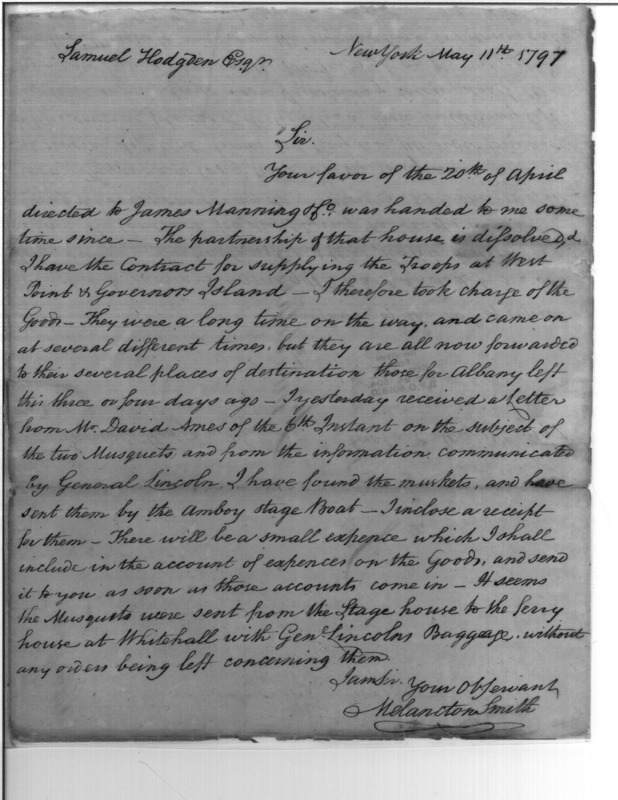 Samuel Hodgden Esqr.
New York May 11th. 1797
Sir.
Your favor of the 20th of April
directed to James Manning & Co. was handed to me some
time since – The partnership of that house is dissolved, &
I have the Contract for supplying the Troops at West
Point & Governors Island – I therefore took charge of the
Goods – They were a long time on the way, and came on
at several different times, but they are all now forwarded
to their several places of destination those for Albany left
this three or four days ago – I yesterday received a Letter
from Mr. David Ames of the 6th Instant on the subject of
the two Musquets, and from the information communicated
by General Lincoln, I have found the muskets, and have
sent them by the Amboy stage Boat – I inclose a receipt
for them – There will be a small expence which I shall
include in the account of expences on the Goods, and send
it to you as soon as those accounts come in – It seems
the Musquets were sent from the Stage house to the ferry
house at Whitehall with Genl. Lincolns Baggage, without
any orders being left concerning them.
I am Sir. Your Ob Servant,
Melancton Smith